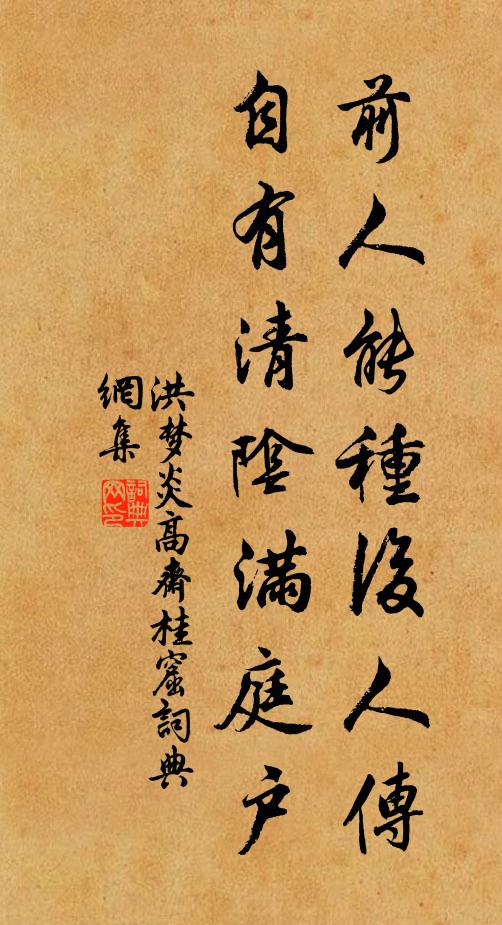 前人能種後人傳
自有清陰滿庭戶
洪梦炎高齋桂窟詞典
網集
詞典
网印